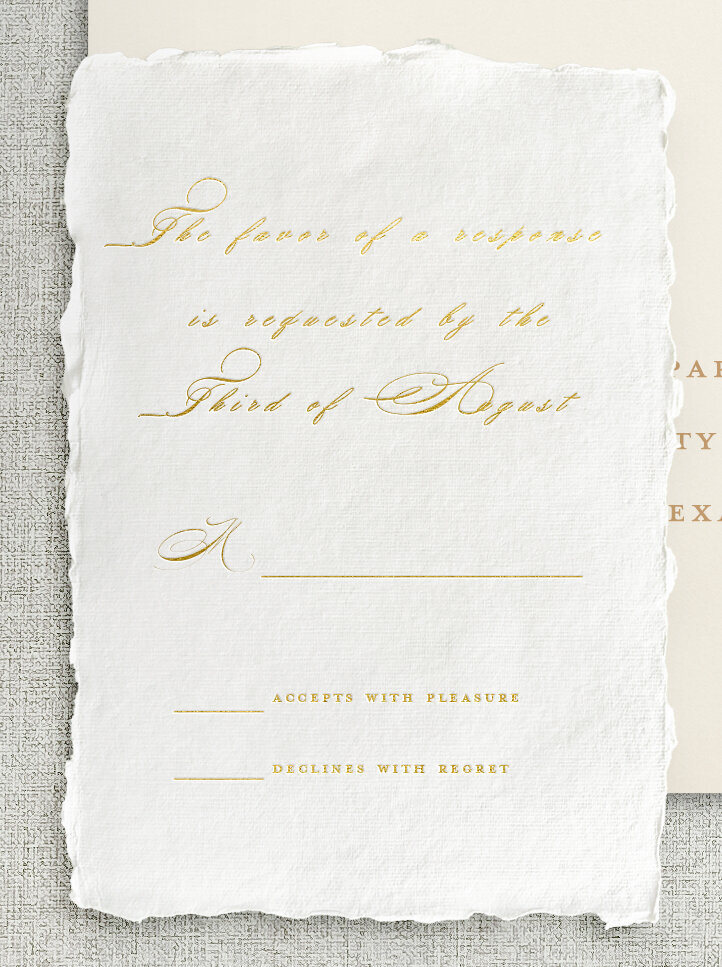 The favor of a response
is requested by the
Third of August
PAR
TY
EXA
M
ACCEPTS WITH PLEASURE
DECLINES WITH REGRET